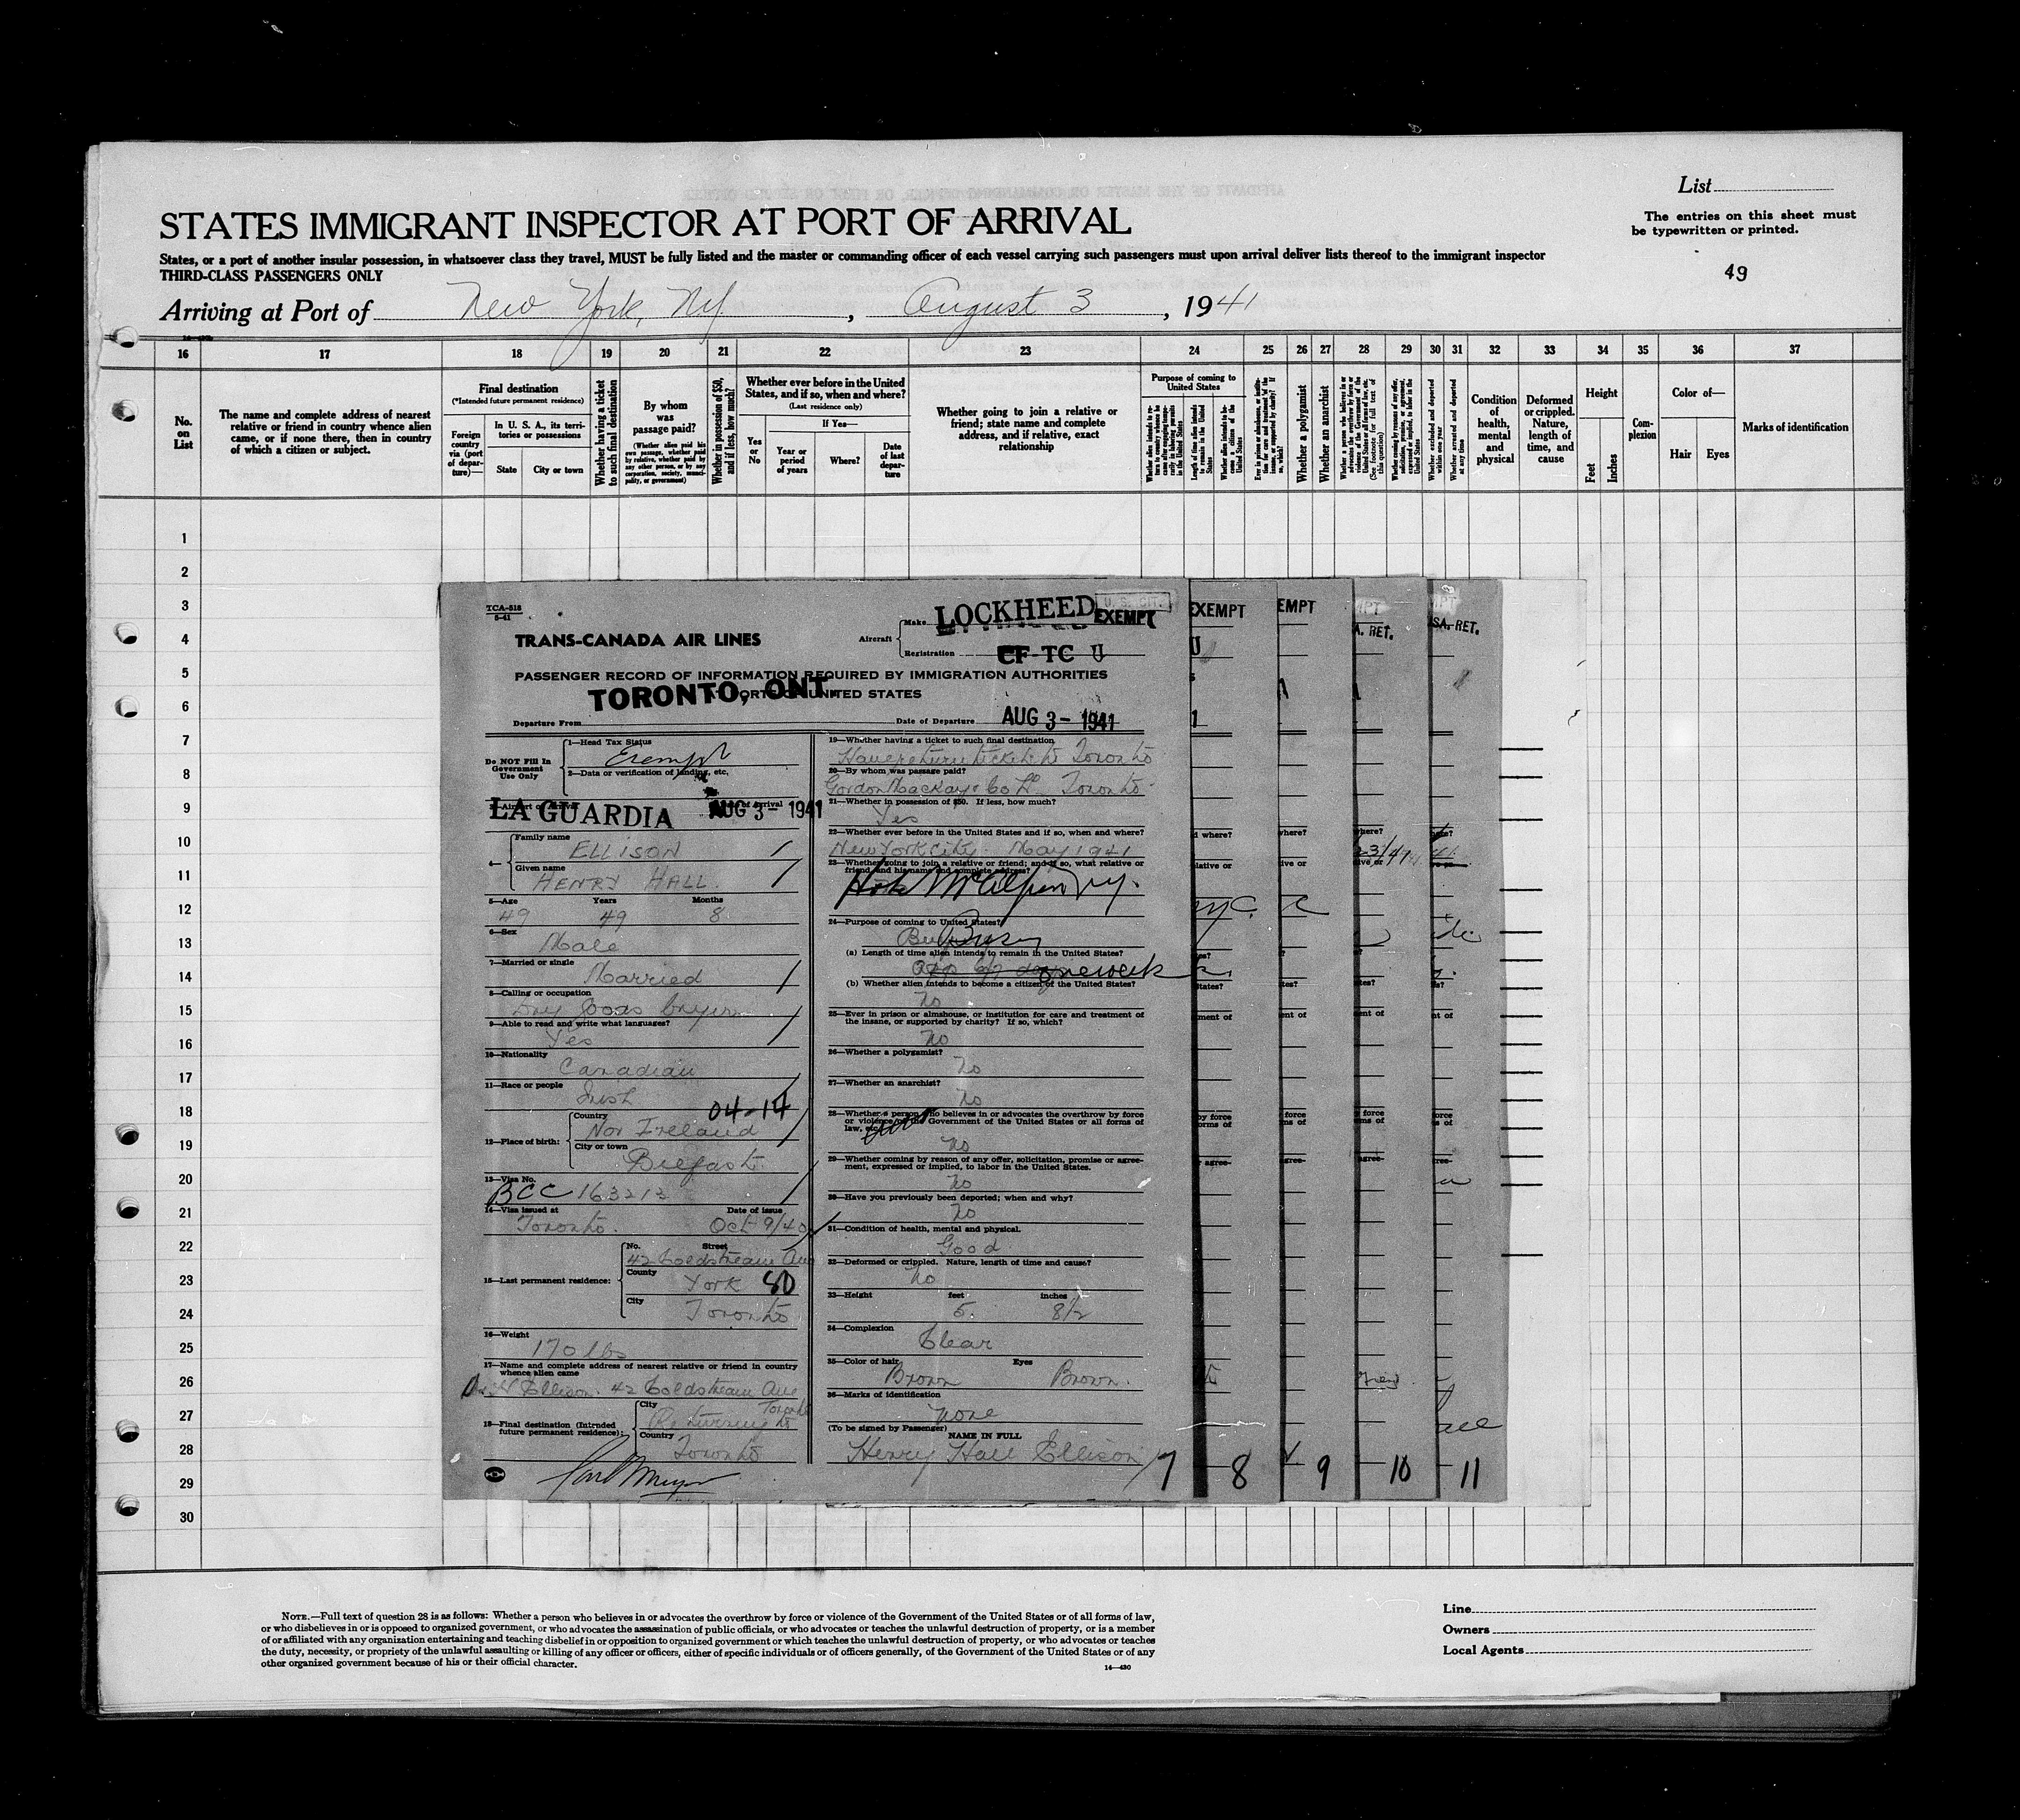 List
STATES IMMIGRANT INSPECTOR AT PORT OF ARRIVAL
The entries on this sheet must
be typewritten or printed.
States, or a port of another insular possession, in whatsoever class they travel, MUST be fully listed and the master or commanding officer of each vessel carrying such passengers must upon arrival deliver lists thereof to the immigrant inspector
THIRD-CLASS PASSENGERS ONLY
49
Arriving at Port of New York, NY, August 3, 1941
16 17 18 19 20 21 22 23 24 25 26 27 28 29 30 31 32 33 34 35 36 37
No. on List
The name and complete address of nearest relative or friend in country whence alien came, or if none there, then in country of which a citizen or subject.
Final destination
(*Intended future permanent residence)
Foreign country via (port of departure)—
In U. S. A., its territories or possessions
State
City or town
Whether having a ticket to such final destination
By whom was passage paid?
(Whether alien paid his own passage, whether paid by relative, whether paid by any other person, or by any corporation, society, municipality, or government)
Whether in possession of $50, and if less, how much?
Whether ever before in the United States, and if so, when and where?
(Last residence only)
If Yes—
Yes or No
Year or period of years
Where?
Date of last departure
Whether going to join a relative or friend; state name and complete address, and if relative, exact relationship
Purpose of coming to United States
Length of time alien intends to remain in the United States
Whether a polygamist
Whether an anarchist
Condition of health, mental and physical
Deformed or crippled. Nature, length of time, and cause
Height
Feet
Inches
Complexion
Color of—
Hair
Eyes
Marks of identification
1
2
3
4
5
6
7
8
9
10
11
12
13
14
15
16
17
18
19
20
21
22
23
24
25
26
27
28
29
30
TCA-518
5-41
TRANS-CANADA AIR LINES
Aircraft
Make LOCKHEED
EXEMPT
Registration CF-TC U
PASSENGER RECORD OF INFORMATION REQUIRED BY IMMIGRATION AUTHORITIES
AT PORT OF UNITED STATES
TORONTO, ONT.
Departure From
Date of Departure AUG 3- 1941
Do NOT Fill In
Government
Use Only
1—Head Tax Status
Exempt
2—Data or verification of landing, etc.
LA GUARDIA AUG 3- 1941
Family name
4— ELLISON
Given name
HENRY HALL
5—Age Years Months
49 49 8
6—Sex
Male
7—Married or single
Married
8—Calling or occupation
Dry Goods buyer
9—Able to read and write what languages?
Yes
10—Nationality
Canadian
11—Race or people
Irish
04-14
12—Place of birth:
Country
Nor Ireland
City or town
Belfast
13—Visa No.
BCC 163213
14—Visa issued at Date of issue
Toronto. Oct 9/40
15—Last permanent residence:
No. Street
42 Coldstream Ave
County
York 80
City
Toronto
16—Weight
170 lbs
17—Name and complete address of nearest relative or friend in country
whence alien came
H Ellison. 42 Coldstream Ave
Toronto
18—Final destination (Intended
future permanent residence):
City
Returning to
Country
Toronto
19—Whether having a ticket to such final destination
Have return ticket to Toronto
20—By whom was passage paid?
Gordon Mackay & Co Ld Toronto
21—Whether in possession of $50. If less, how much?
Yes
22—Whether ever before in the United States and if so, when and where?
New York City. May 1941
23—Whether going to join a relative or friend; and if so, what relative or
friend and his name and complete address?
Hotel McAlpin NY.
24—Purpose of coming to United States?
(a) Length of time alien intends to remain in the United States?
one week
(b) Whether alien intends to become a citizen of the United States?
No
25—Ever in prison or almshouse, or institution for care and treatment of
the insane, or supported by charity? If so, which?
No
26—Whether a polygamist?
No
27—Whether an anarchist?
No
28—Whether a person who believes in or advocates the overthrow by force
or violence of the Government of the United States or all forms of
law, etc.
No
29—Whether coming by reason of any offer, solicitation, promise or agree-
ment, expressed or implied, to labor in the United States.
No
30—Have you previously been deported; when and why?
No
31—Condition of health, mental and physical.
Good
32—Deformed or crippled. Nature, length of time and cause?
No
33—Height feet inches
5. 8½
34—Complexion
Clear
35—Color of hair Eyes
Brown Brown.
36—Marks of identification
none
(To be signed by Passenger)
NAME IN FULL
Henry Hall Ellison
7 8 9 10 11
NOTE.—Full text of question 28 is as follows: Whether a person who believes in or advocates the overthrow by force or violence of the Government of the United States or of all forms of law,
or who disbelieves in or is opposed to organized government, or who advocates the assassination of public officials, or who advocates or teaches the unlawful destruction of property, or is a member
of or affiliated with any organization entertaining and teaching disbelief in or opposition to organized government or which teaches the unlawful destruction of property, or who advocates or teaches
the duty, necessity, or propriety of the unlawful assaulting or killing of any officer or officers, either of specific individuals or of officers generally, of the Government of the United States or of any
other organized government because of his or their official character.
14—430
Line
Owners
Local Agents